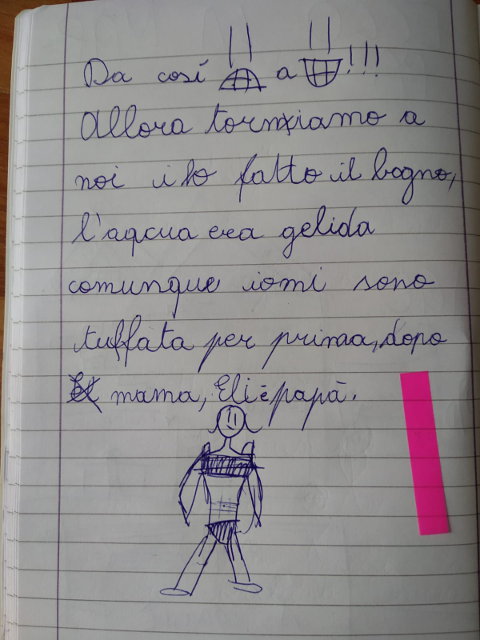 Da così a !!!
Allora torniamo a
noi i ho fatto il bagno,
l'aqcua era gelida
comunque iomi sono
tuffata per prima, dopo
mama, Eli e papà.